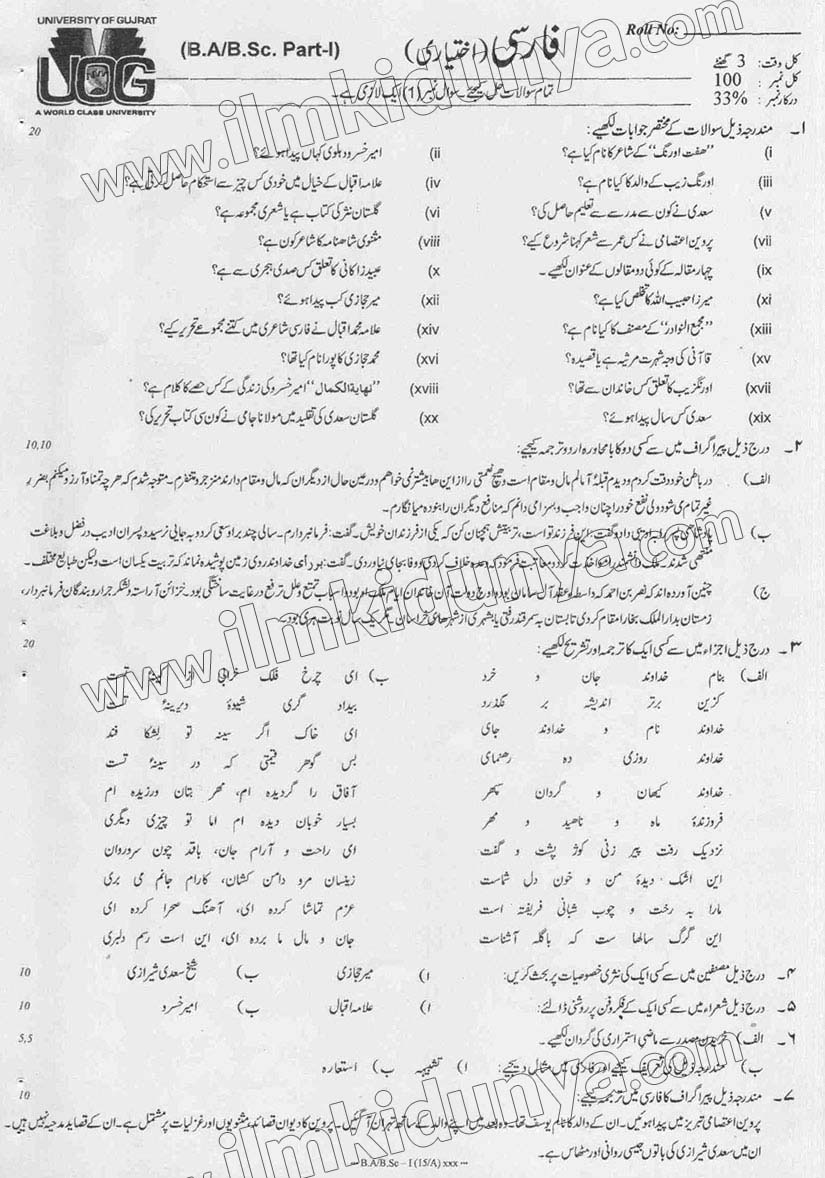 UNIVERSITY OF GUJRAT
UOG
A WORLD CLASS UNIVERSITY
(B.A/B.Sc. Part-I)
فارسی (اختیاری)
Roll No:
کل وقت: 3 گھنٹے
کل نمبر: 100
درکار نمبر: 33%
تمام سوالات حل کیجیے۔ سوال نمبر (1) ایک لازمی ہے۔
۱۔ مندرجہ ذیل سوالات کے مختصر جوابات لکھیے: 20
(i "ھفت اورنگ" کے شاعر کا نام کیا ہے؟ (ii امیر خسرو دہلوی کہاں پیدا ہوئے؟
(iii اورنگ زیب کے والد کا کیا نام ہے؟ (iv علامہ اقبال کے خیال میں خودی کس چیز سے استحکام حاصل کرتی ہے؟
(v سعدی نے کون سے مدرسے سے تعلیم حاصل کی؟ (vi گلستان نثر کی کتاب ہے یا شعری مجموعہ ہے؟
(vii پروین اعتصامی نے کس عمر سے شعر کہنا شروع کیے؟ (viii مثنوی شاھنامہ کا شاعر کون ہے؟
(ix چہار مقالہ کے کوئی دو مقالوں کے عنوان لکھیے۔ (x عبید زاکانی کا تعلق کس صدی ہجری سے ہے؟
(xi میرزا حبیب اللہ کا تخلص کیا ہے؟ (xii میر حجازی کب پیدا ہوئے؟
(xiii "مجمع النوادر" کے مصنف کا کیا نام ہے؟ (xiv علامہ محمد اقبال نے فارسی شاعری میں کتنے مجموعے تحریر کیے؟
(xv قاآنی کی وجہ شہرت مرثیہ ہے یا قصیدہ؟ (xvi محمد حجازی کا پورا نام کیا تھا؟
(xvii اورنگزیب کا تعلق کس خاندان سے تھا؟ (xviii "نهایة الکمال" امیر خسرو کی زندگی کے کس حصے کا کلام ہے؟
(xix سعدی کس سال پیدا ہوئے؟ (xx گلستان سعدی کی تقلید میں مولانا جامی نے کون سی کتاب تحریر کی؟
۲۔ درج ذیل پیراگراف میں سے کسی دو کا بامحاورہ اردو ترجمہ کیجیے: 10,10
الف) در باطن خود دقت کردم و دیدم قبلۂ آمالم مال و مقام است و هیچ نعمتی را از این ها بیشتر نمی خواهم و در عین حال از دیگران که مال و مقام دارند منزجر و متنفرم۔ متوجه شدم که هر چه تمنا و آرزو میکنم بضرر
غیر تمام شود ولی نفع خود را چنان واجب و بسزا می دانم که منافع دیگران را بنوده می انگارم۔
ب) پادشاهی پسر را به ادیبی داد و گفت: این فرزند تو است، تربیتش همچنان کن که یکی از فرزندان خویش۔ گفت: فرمانبردارم۔ سالی چند بر او سعی کرد و به جایی نرسید و پسران ادیب در فضل و بلاغت
منتهی شدند۔ ملک دانشمند را مواخذت کرد و معاتبت فرمود که وعده خلاف کردی و وفا بجای نیاوردی۔ گفت: بر رأی خداوند روی زمین پوشیده نماند که تربیت یکسان است ولیکن طبایع مختلف۔
ج) چنین آورده اند که نصر بن احمد که واسطۀ عقد آل سامان بود و اوج دولت آن خاندان ایام ملک او بود و اسباب تمتع و علل ترفع در غایت ساختگی بود۔ خزائن آراسته و لشکر جرار و بندگان فرمانبردار،
زمستان بدارالملک بخارا مقام کردی و تابستان به سمرقند رفتی یا بشهری از شهرهای خراسان۔ مگر یک سال نوبت هری بود۔
۳۔ درج ذیل اجزاء میں سے کسی ایک کا ترجمہ اور تشریح لکھیے: 20
الف) بنام خداوند جان و خرد ب) ای چرخ فلک خرابی از کینهٔ تست
کزین برتر اندیشه بر نگذرد بیداد گری شیوۂ دیرینهٔ تست
خداوند نام و خداوند جای ای خاک اگر سینه تو بشگافند
خداوند روزی ده رهنمای بس گوهر قیمتی که در سینهٔ تست
خداوند کیهان و گردان سپهر آفاق را گردیده ام، مهر بتان ورزیده ام
فروزندۂ ماه و ناهید و مهر بسیار خوبان دیده ام اما تو چیزی دیگری
نزدیک رفت پیر زنی کوژ پشت و گفت ای راحت و آرام جان، باقد چون سرو روان
این اشک دیدۂ من و خون دل شماست زینسان مرو دامن کشان، کارام جانم می بری
مارا به رخت و چوب شبانی فریفته است عزم تماشا کرده ای، آهنگ صحرا کرده ای
این گرگ سالها ست که باگله آشناست جان و مال ما برده ای، این است رسم دلبری
۴۔ درج ذیل مصنفین میں سے کسی ایک کی نثری خصوصیات پر بحث کریں: ا) میر حجازی ب) شیخ سعدی شیرازی 10
۵۔ درج ذیل شعراء میں سے کسی ایک کے فکر و فن پر روشنی ڈالئے: ا) علامہ اقبال ب) امیر خسرو 10
۶۔ الف) خریدن مصدر سے ماضی استمراری کی گردان لکھیے۔ 5,5
ب) مندرجہ ذیل کی تعریف کیجیے اور فارسی میں مثال دیجیے: ا) تشبیہہ ب) استعارہ
۷۔ مندرجہ ذیل پیراگراف کا فارسی میں ترجمہ کیجیے: 10
پروین اعتصامی تبریز میں پیدا ہوئیں۔ ان کے والد کا نام یوسف تھا۔ وہ بعد میں اپنے والد کے ساتھ تہران آ گئیں۔ پروین کا دیوان قصائد، مثنویوں اور غزلیات پر مشتمل ہے۔ ان کے قصاید مدحیہ نہیں ہیں۔
ان میں سعدی شیرازی کی باتوں جیسی روانی اور مٹھاس ہے۔
--- B.A/B.Sc – I (15/A) xxx ---
www.ilmkidunya.com
www.ilmkidunya.com
www.ilmkidunya.com
www.ilmkidunya.com